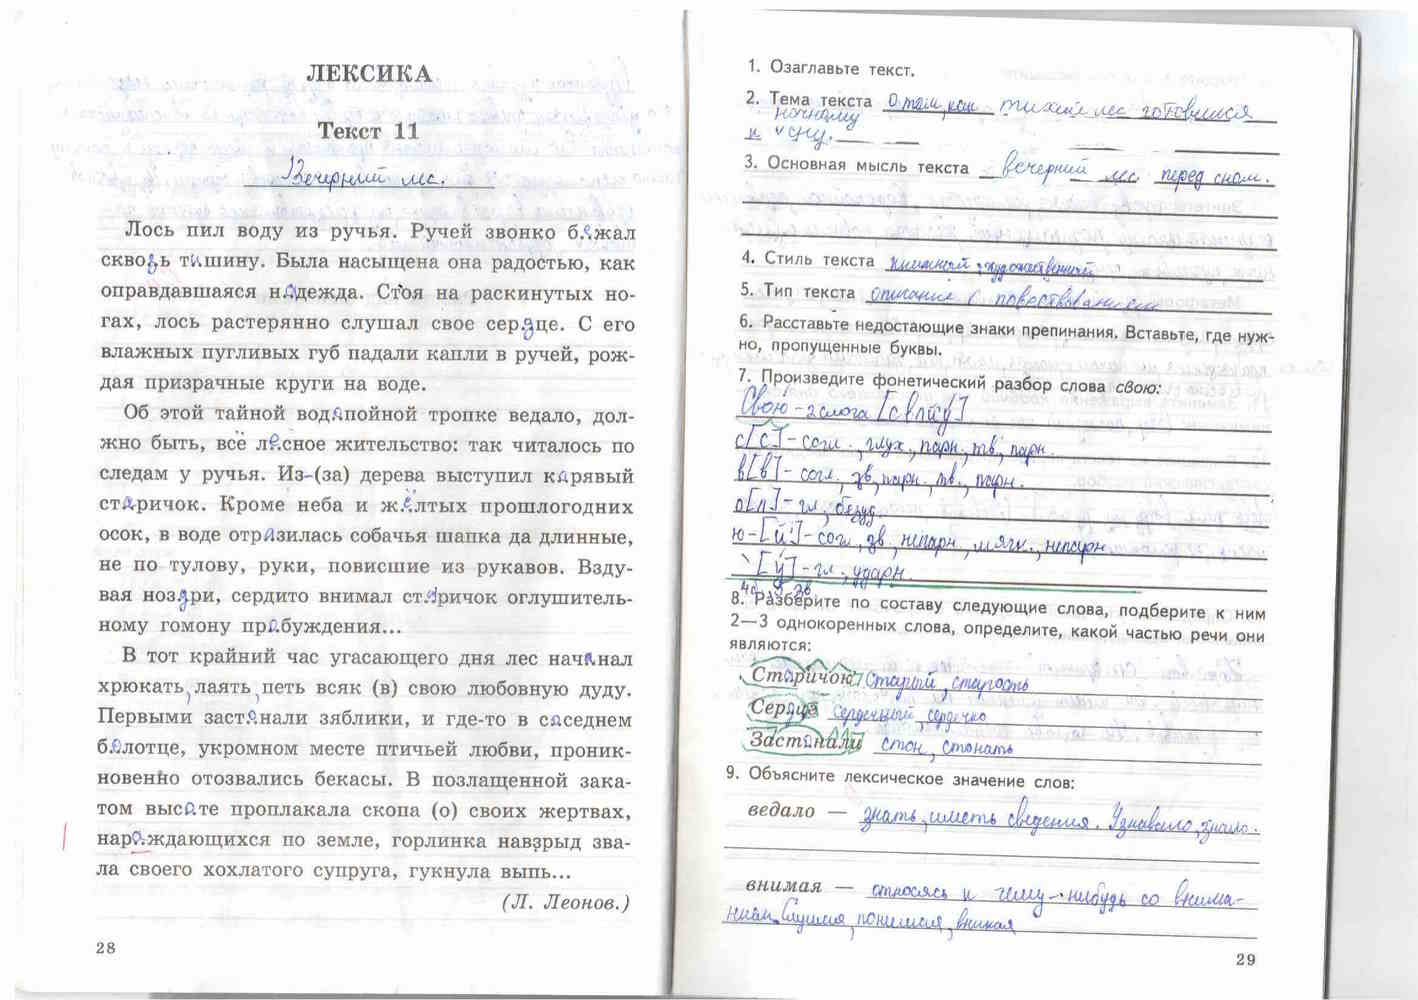 ЛЕКСИКА
Текст 11
Вечерний лес.
Лось пил воду из ручья. Ручей звонко бежал
сквозь тишину. Была насыщена она радостью, как
оправдавшаяся надежда. Стоя на раскинутых но-
гах, лось растерянно слушал свое сердце. С его
влажных пугливых губ падали капли в ручей, рож-
дая призрачные круги на воде.
Об этой тайной водопойной тропке ведало, дол-
жно быть, всё лесное жительство: так читалось по
следам у ручья. Из-(за) дерева выступил корявый
старичок. Кроме неба и жёлтых прошлогодних
осок, в воде отразилась собачья шапка да длинные,
не по тулову, руки, повисшие из рукавов. Взду-
вая ноздри, сердито внимал старичок оглушитель-
ному гомону пробуждения...
В тот крайний час угасающего дня лес начинал
хрюкать, лаять, петь всяк (в) свою любовную дуду.
Первыми застонали зяблики, и где-то в соседнем
болотце, укромном месте птичьей любви, проник-
новенно отозвались бекасы. В позлащенной зака-
том высоте проплакала скопа (о) своих жертвах,
нарождающихся по земле, горлинка навзрыд зва-
ла своего хохлатого супруга, гукнула выпь...
(Л. Леонов.)
28
1. Озаглавьте текст.
2. Тема текста О том, как тихий лес готовился
к ночному сну.
3. Основная мысль текста вечерний лес перед сном.
4. Стиль текста книжный, художественный
5. Тип текста описание с повествованием
6. Расставьте недостающие знаки препинания. Вставьте, где нуж-
но, пропущенные буквы.
7. Произведите фонетический разбор слова свою:
Свою - 2 слога [свлйу]
с[с] - согл., глух., парн., тв., парн.
в[в] - согл., зв., парн., тв., парн.
о[л] - гл., безуд.
ю - [й'] - согл., зв., непарн., мягк., непарн
[у] - гл., ударн.
4б, 5 зв.
8. Разберите по составу следующие слова, подберите к ним
2—3 однокоренных слова, определите, какой частью речи они
являются:
Старичок, старый, старость
Сердце сердечный, сердечко
Застонали стон, стонать
9. Объясните лексическое значение слов:
ведало — знать, иметь сведения. Узнавало, знало.
внимая — относясь к чему-нибудь со внима-
нием. Слушая, понимая, вникая
29